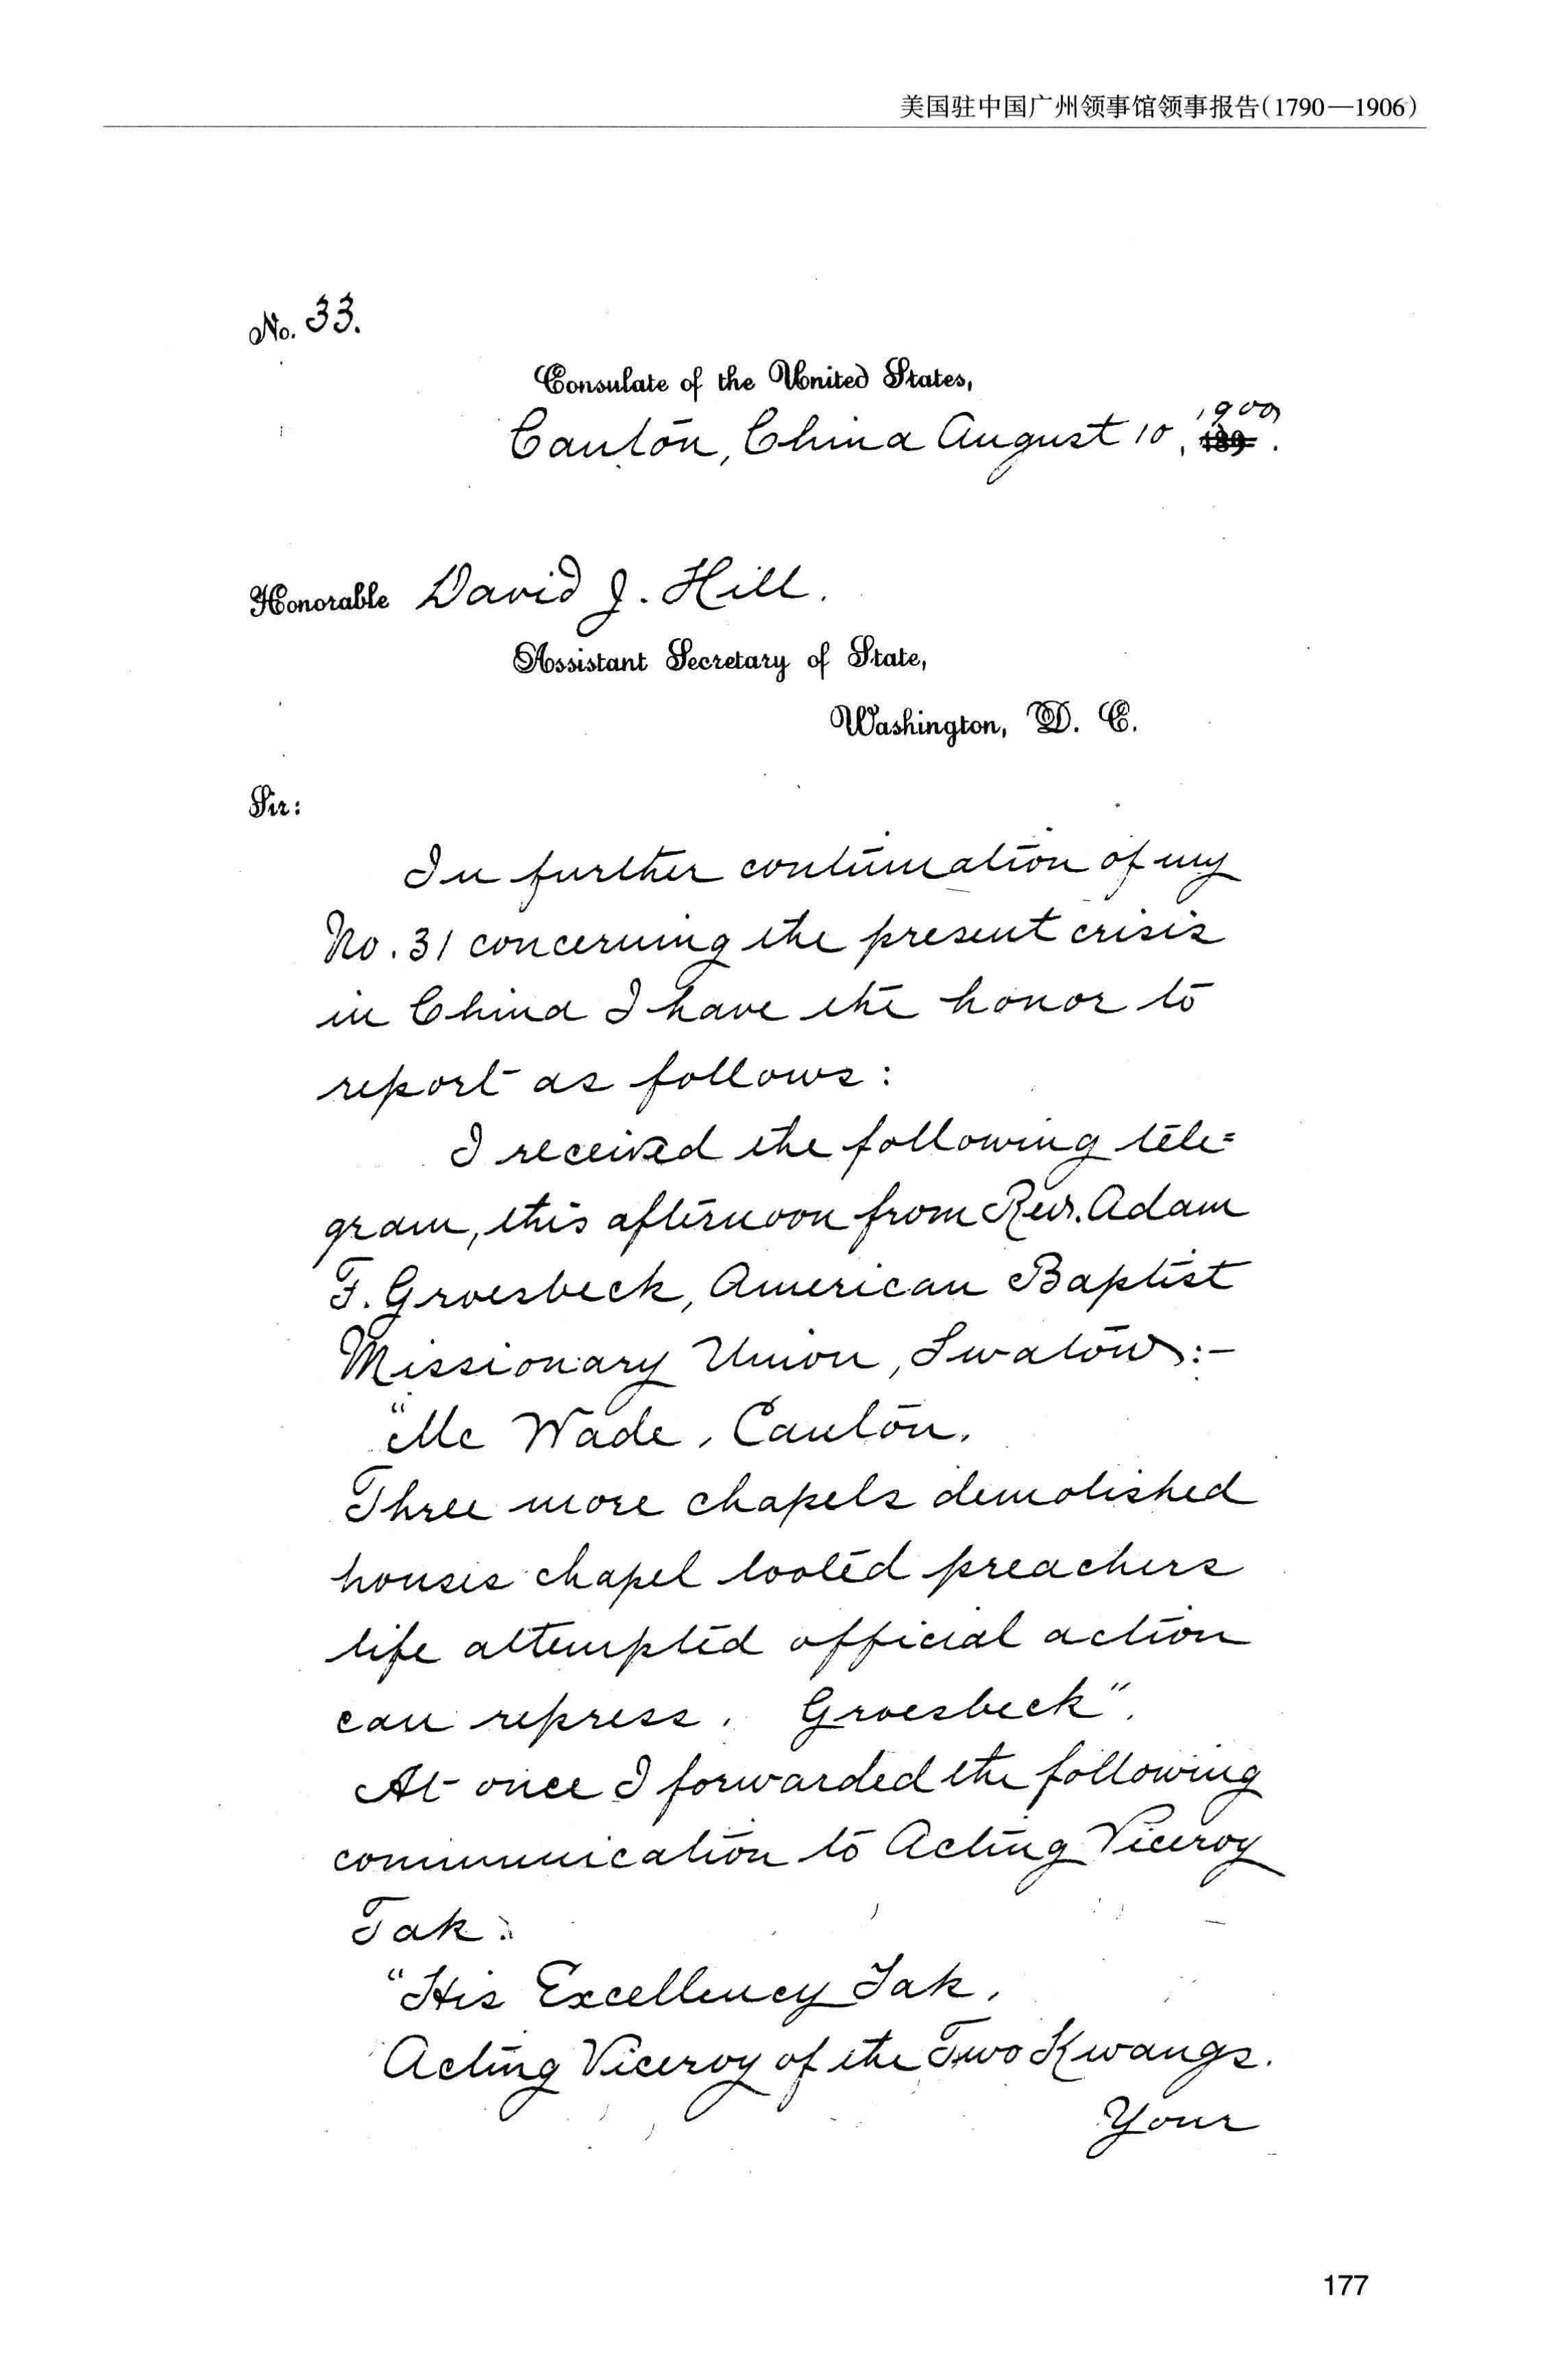 美国驻中国广州领事馆领事报告(1790—1906)
No. 33.
Consulate of the United States,
Canton, China August 10, 1900.
Honorable David J. Hill.
Assistant Secretary of State,
Washington, D. C.
Sir:
In further continuation of my
No. 31 concerning the present crisis
in China I have the honor to
report as follows:
I received the following tele=
gram, this afternoon from Rev. Adam
F. Groesbeck, American Baptist
Missionary Union, Swatow:-
"Mc Wade, Canton.
Three more chapels demolished
houses chapel looted preachers
life attempted official action
can repress. Groesbeck".
At once I forwarded the following
communication to Acting Viceroy
Tak:
"His Excellency Tak,
Acting Viceroy of the Two Kwangs.
Your
177